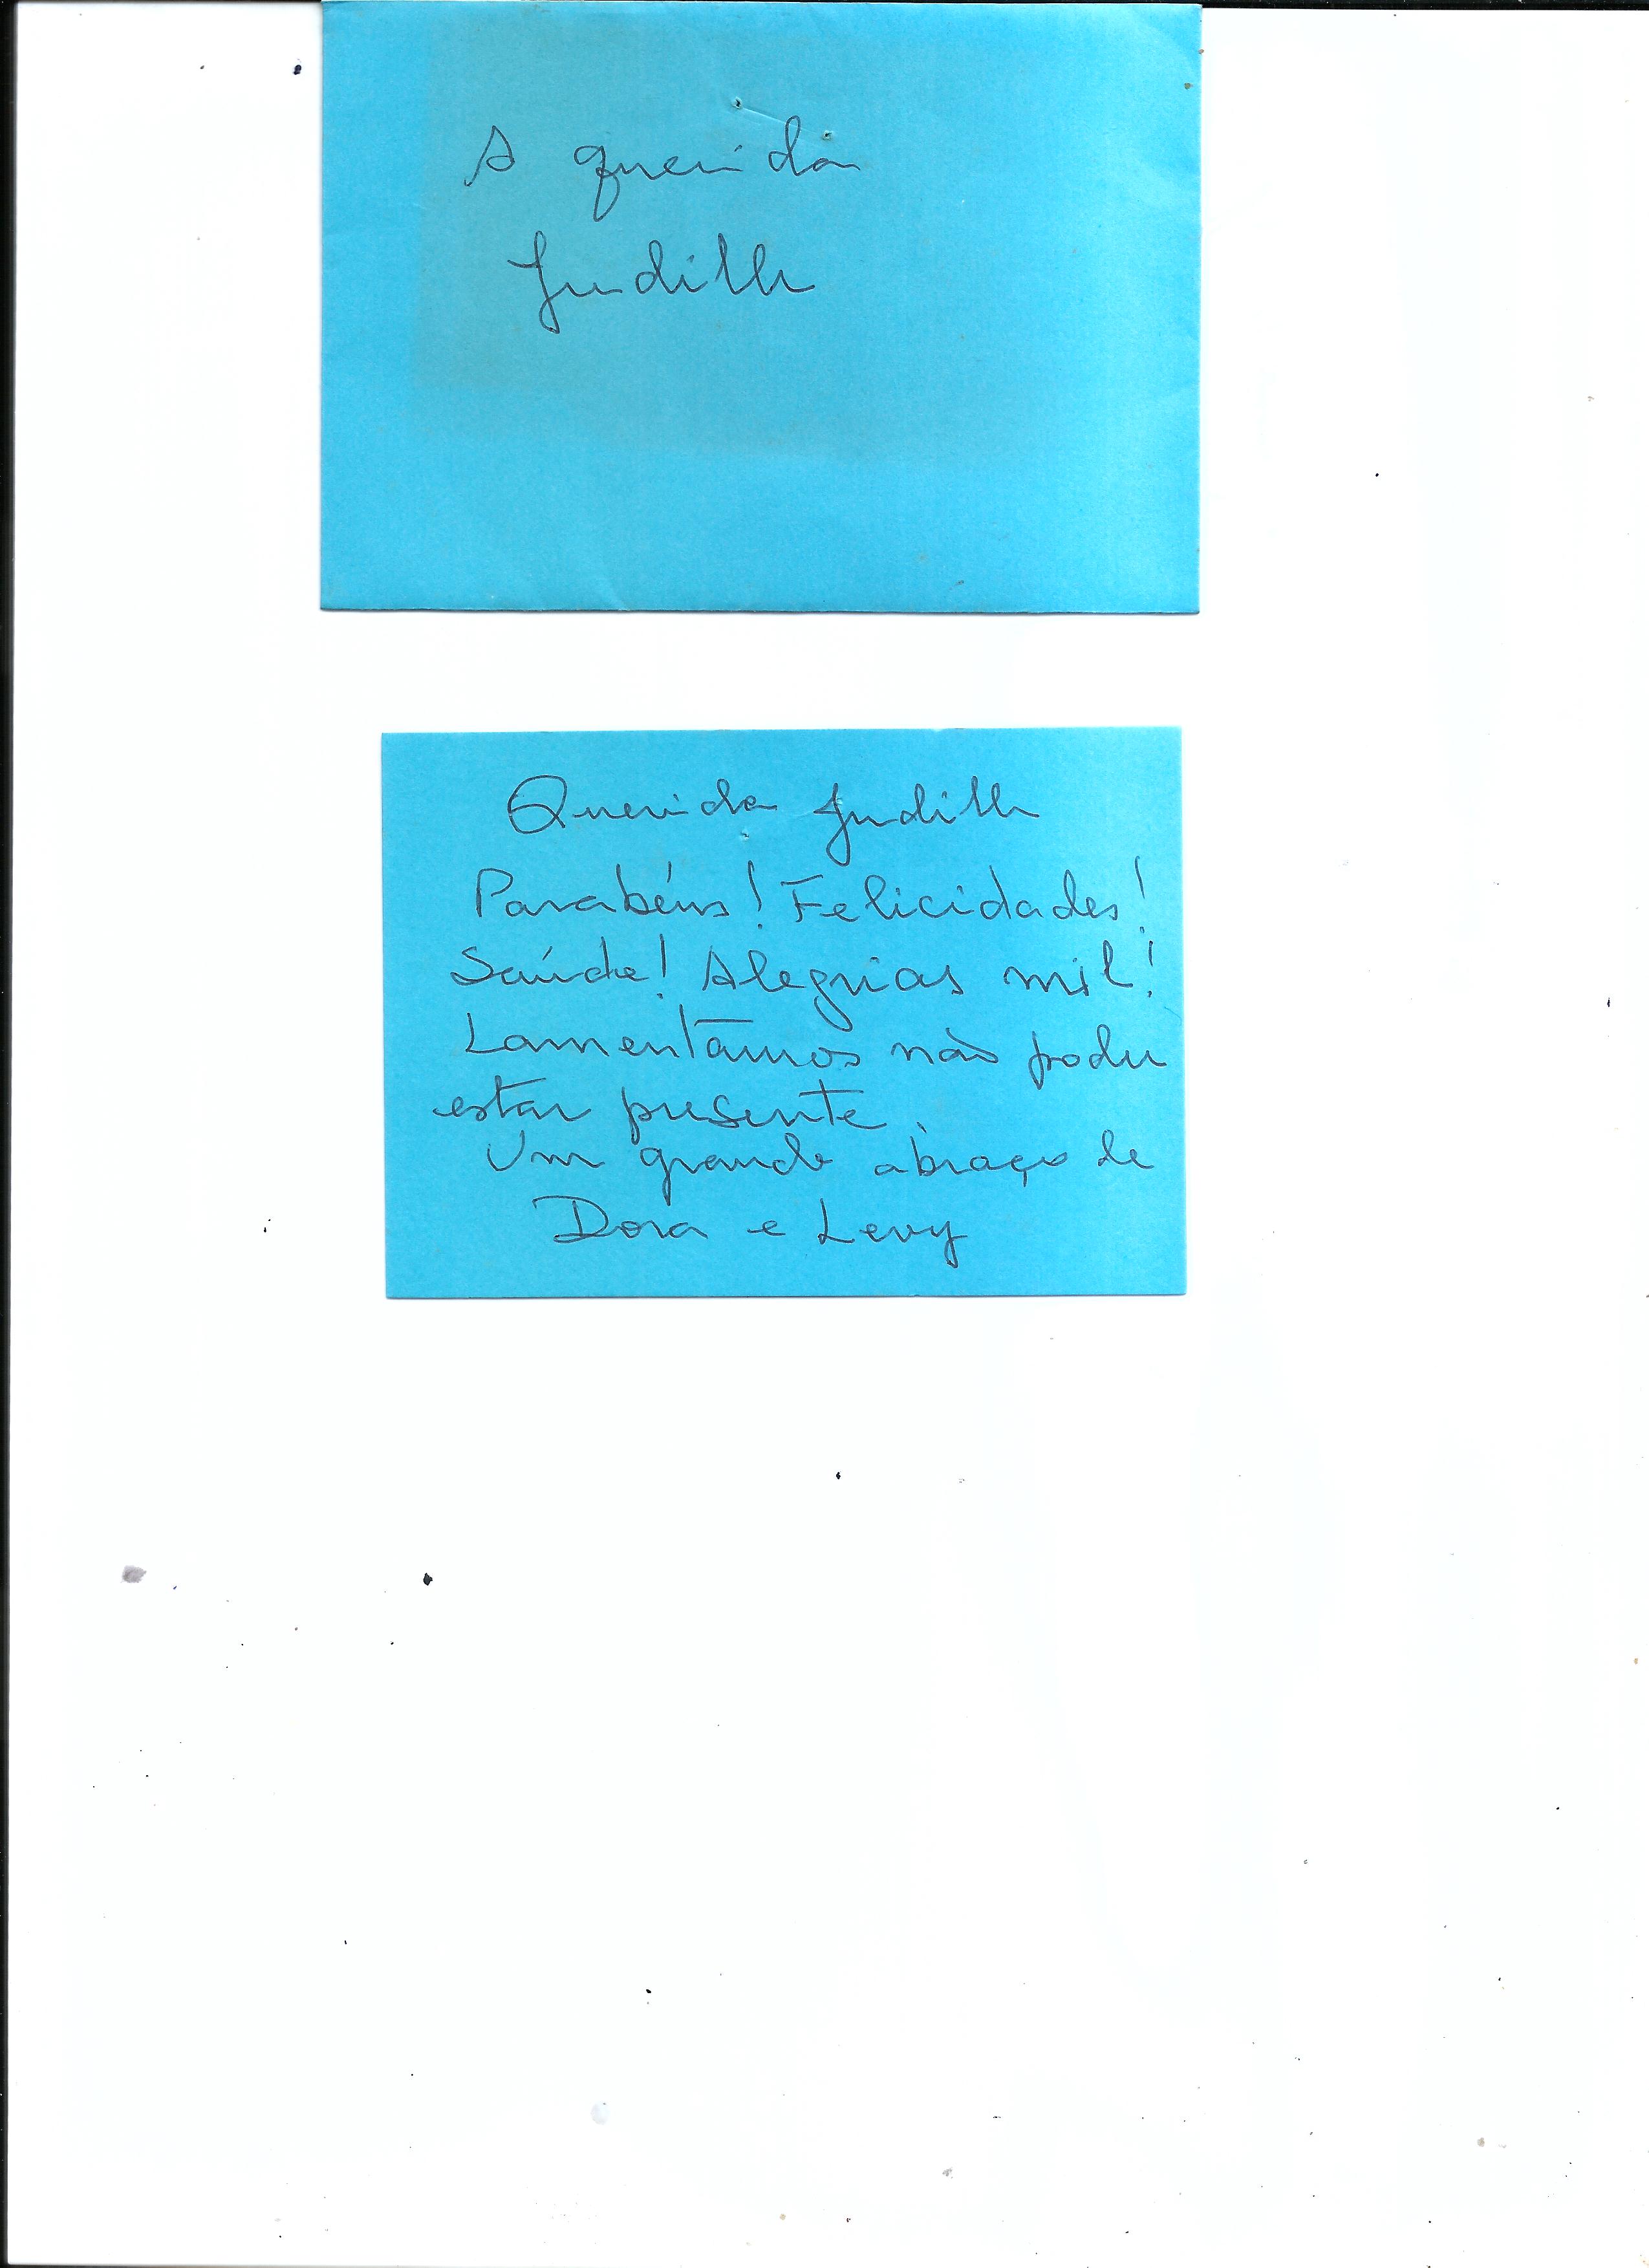 A querida
Judith
Querida Judith
Parabéns! Felicidades!
Saúde! Alegrias mil!
Lamentamos não poder
estar presente.
Um grande abraço de
Dora e Levy